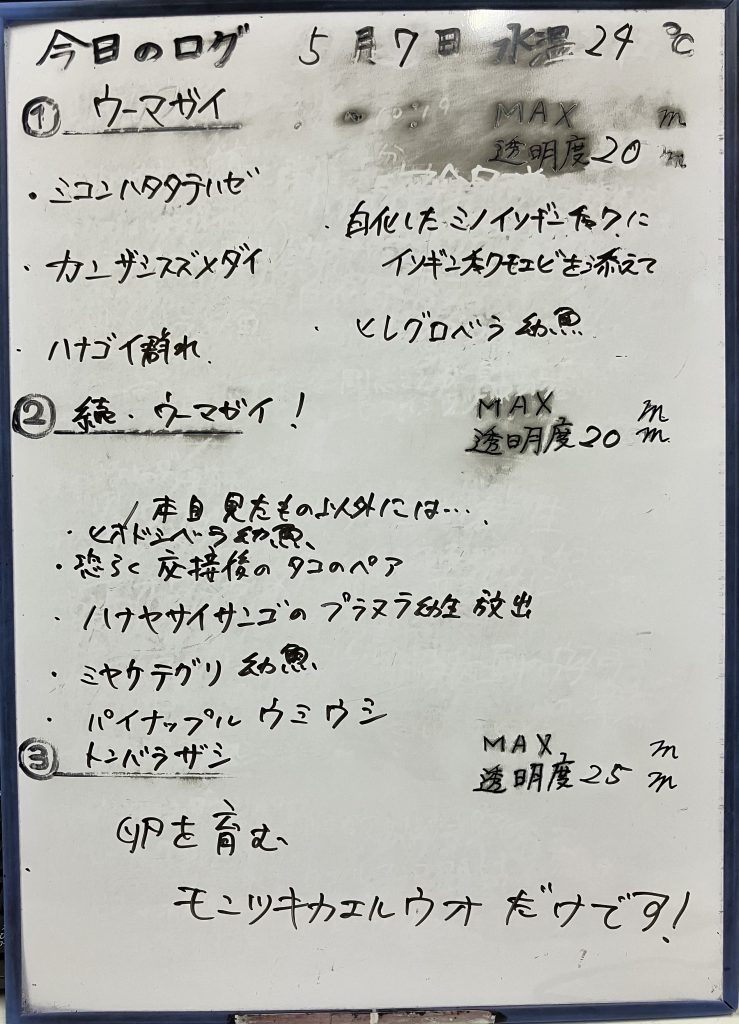 今日のログ 5月7日 水温24℃
① ウーマガイ MAX m
透明度20m
・ミコンハタタテハゼ
・白化したミノイソギンチャクに
イソギンチャクモエビを添えて
・カンザシスズメダイ
・ヒレグロベラ幼魚
・ハナゴイ群れ
② 続・ウーマガイ! MAX m
透明度20m
1本目見たもの以外には…
・ヒオドシベラ幼魚
・恐らく交接後のタコのペア
・ハナヤサイサンゴのプラヌラ幼生放出
・ミヤケテグリ幼魚
・パイナップルウミウシ
③ トンバラザシ MAX m
透明度25m
卵を育む、
モンツキカエルウオだけです!